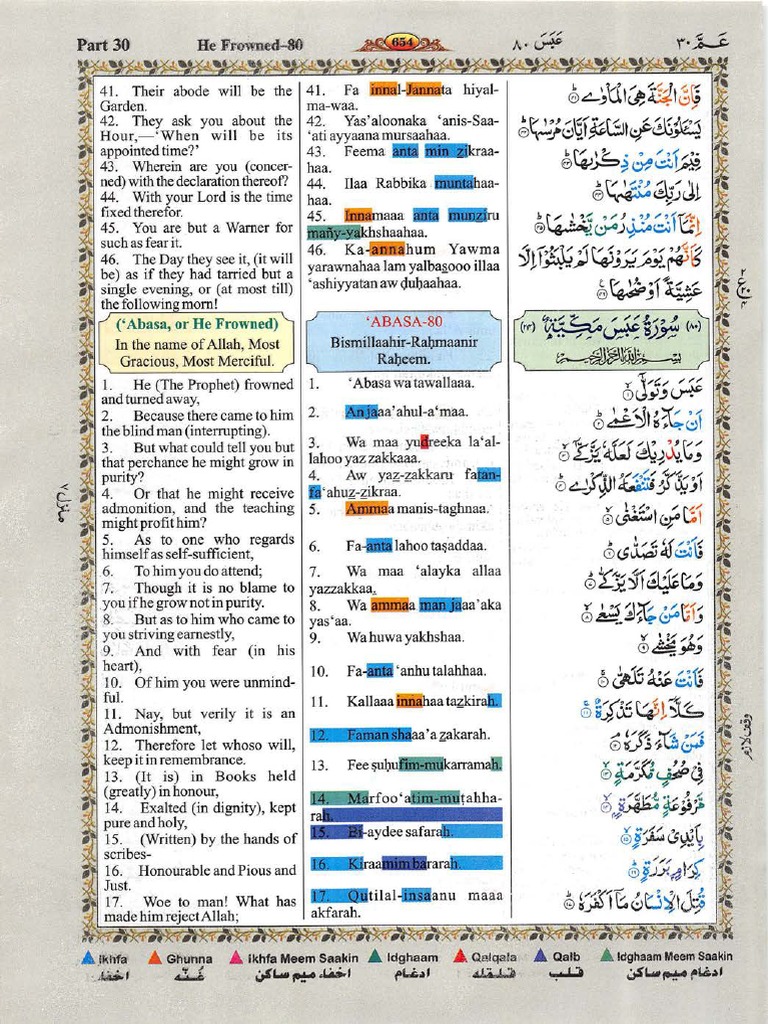 Part 30
He Frowned–80
654
عَبَسَ ٨٠
عَـمَّ ٣٠
41. Their abode will be the
Garden.
42. They ask you about the
Hour,—‘When will be its
appointed time?’
43. Wherein are you (concer-
ned) with the declaration thereof?
44. With your Lord is the time
fixed therefor.
45. You are but a Warner for
such as fear it.
46. The Day they see it, (it will
be) as if they had tarried but a
single evening, or (at most till)
the following morn!
(‘Abasa, or He Frowned)
In the name of Allah, Most
Gracious, Most Merciful.
1. He (The Prophet) frowned
and turned away,
2. Because there came to him
the blind man (interrupting).
3. But what could tell you but
that perchance he might grow in
purity?
4. Or that he might receive
admonition, and the teaching
might profit him?
5. As to one who regards
himself as self-sufficient,
6. To him you do attend;
7. Though it is no blame to
you if he grow not in purity.
8. But as to him who came to
you striving earnestly,
9. And with fear (in his
heart),
10. Of him you were unmind-
ful.
11. Nay, but verily it is an
Admonishment,
12. Therefore let whoso will,
keep it in remembrance.
13. (It is) in Books held
(greatly) in honour,
14. Exalted (in dignity), kept
pure and holy,
15. (Written) by the hands of
scribes-
16. Honourable and Pious and
Just.
17. Woe to man! What has
made him reject Allah;
41. Fa innal-Jannata hiyal-
ma-waa.
42. Yas’aloonaka ‘anis-Saa-
‘ati ayyaana mursaahaa.
43. Feema anta min zikraa-
haa.
44. Ilaa Rabbika muntahaa-
haa.
45. Innamaaa anta munziru
mañy-yakhshaahaa.
46. Ka-annahum Yawma
yarawnahaa lam yalbasooo illaa
‘ashiyyatan aw ḍuḥaahaa.
‘ABASA-80
Bismillaahir-Raḥmaanir
Raḥeem.
1. ‘Abasa wa tawallaaa.
2. An jaaa’ahul-a‘maa.
3. Wa maa yudreeka la‘al-
lahoo yaz zakkaaa.
4. Aw yaz-zakkaru fatan-
fa‘ahuz-zikraa.
5. Ammaa manis-taghnaa.
6. Fa-anta lahoo taṣaddaa.
7. Wa maa ‘alayka allaa
yazzakkaa.
8. Wa ammaa man jaaa’aka
yas‘aa.
9. Wa huwa yakhshaa.
10. Fa-anta ‘anhu talahhaa.
11. Kallaaa innahaa tazkirah.
12. Faman shaaa’a zakarah.
13. Fee ṣuḥufim-mukarramah.
14. Marfoo‘atim-muṭahha-
rah.
15. Bi-aydee safarah.
16. Kiraamim bararah.
17. Qutilal-insaanu maaa
akfarah.
فَاِنَّ الْجَنَّةَ هِىَ الْمَاْوٰى ﴿٤١﴾
يَسْـَٔلُوْنَكَ عَنِ السَّاعَةِ اَيَّانَ مُرْسٰىهَا ﴿٤٢﴾
فِيْمَ اَنْتَ مِنْ ذِكْرٰىهَا ﴿٤٣﴾
اِلٰى رَبِّكَ مُنْتَهٰىهَا ﴿٤٤﴾
اِنَّمَاۤ اَنْتَ مُنْذِرُ مَنْ يَّخْشٰىهَا ﴿٤٥﴾
كَاَنَّهُمْ يَوْمَ يَرَوْنَهَا لَمْ يَلْبَثُوْۤا اِلَّا
عَشِيَّةً اَوْ ضُحٰىهَا ﴿٤٦﴾
(٨٠) سُوْرَةُ عَبَسَ مَكِّيَّةٌ (٢٤)
بِسْمِ اللّٰهِ الرَّحْمٰنِ الرَّحِيْمِ
عَبَسَ وَتَوَلّٰىۤ ﴿١﴾
اَنْ جَآءَهُ الْاَعْمٰى ﴿٢﴾
وَمَا يُدْرِيْكَ لَعَلَّهٗ يَزَّكّٰىۤ ﴿٣﴾
اَوْ يَذَّكَّرُ فَتَنْفَعَهُ الذِّكْرٰى ﴿٤﴾
اَمَّا مَنِ اسْتَغْنٰى ﴿٥﴾
فَاَنْتَ لَهٗ تَصَدّٰى ﴿٦﴾
وَمَا عَلَيْكَ اَلَّا يَزَّكّٰى ﴿٧﴾
وَاَمَّا مَنْ جَآءَكَ يَسْعٰى ﴿٨﴾
وَهُوَ يَخْشٰى ﴿٩﴾
فَاَنْتَ عَنْهُ تَلَهّٰى ﴿١٠﴾
كَلَّاۤ اِنَّهَا تَذْكِرَةٌ ﴿١١﴾
فَمَنْ شَآءَ ذَكَرَهٗ ﴿١٢﴾
فِىْ صُحُفٍ مُّكَرَّمَةٍ ﴿١٣﴾
مَّرْفُوْعَةٍ مُّطَهَّرَةٍ ﴿١٤﴾
بِاَيْدِىْ سَفَرَةٍ ﴿١٥﴾
كِرَامٍۭ بَرَرَةٍ ﴿١٦﴾
قُتِلَ الْاِنْسَانُ مَاۤ اَكْفَرَهٗ ﴿١٧﴾
وقف لازم
Ikhfa
Ghunna
Ikhfa Meem Saakin
Idghaam
Qalqala
Qalb
Idghaam Meem Saakin
اخفا
غُنّه
اخفاء ميم ساكن
ادغام
قلقله
قلب
ادغام ميم ساكن